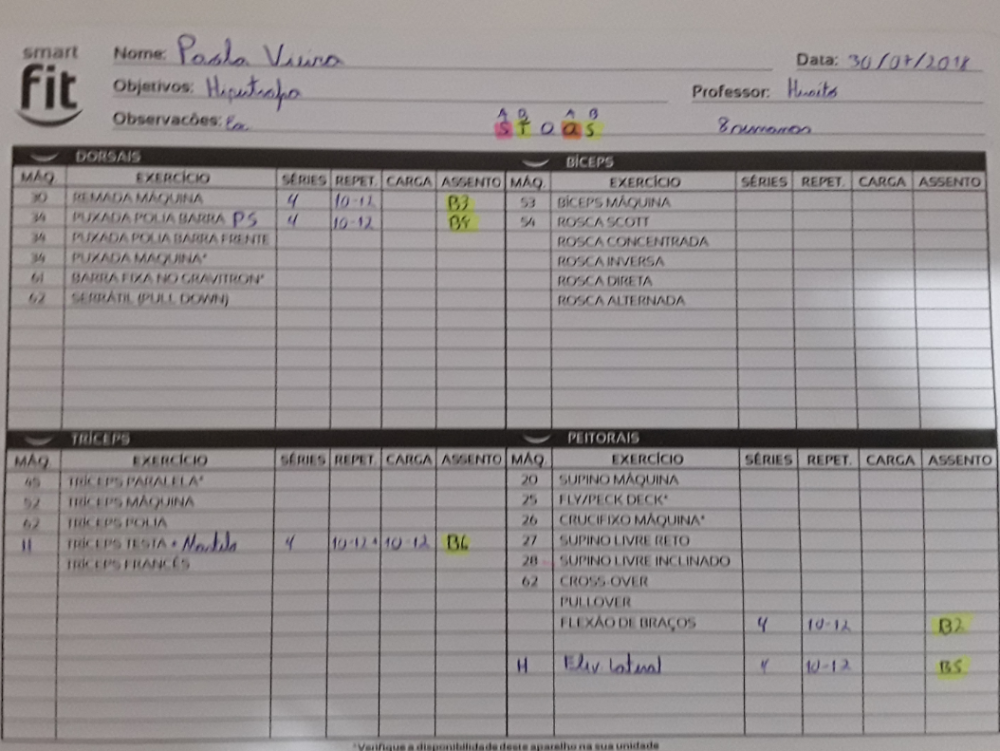 smart
fit
Nome: Paola Vieira
Data: 30/07/2018
Objetivos:
Professor:
Observações:
A B A B
S T Q Q S
DORSAIS
MÁQ. EXERCÍCIO SÉRIES REPET. CARGA ASSENTO
30 REMADA MÁQUINA 4 10-12 B3
34 PUXADA POLIA BARRA PS 4 10-12 B4
34 PUXADA POLIA BARRA FRENTE
34 PUXADA MÁQUINA*
61 BARRA FIXA NO GRAVITRON*
62 SERRÁTIL (PULL DOWN)
BÍCEPS
MÁQ. EXERCÍCIO SÉRIES REPET. CARGA ASSENTO
53 BÍCEPS MÁQUINA
54 ROSCA SCOTT
ROSCA CONCENTRADA
ROSCA INVERSA
ROSCA DIRETA
ROSCA ALTERNADA
TRÍCEPS
MÁQ. EXERCÍCIO SÉRIES REPET. CARGA ASSENTO
45 TRÍCEPS PARALELA*
52 TRÍCEPS MÁQUINA
62 TRÍCEPS POLIA
H TRÍCEPS TESTA + Martelo 4 10-12 + 10-12 B6
TRÍCEPS FRANCÊS
PEITORAIS
MÁQ. EXERCÍCIO SÉRIES REPET. CARGA ASSENTO
20 SUPINO MÁQUINA
25 FLY/PECK DECK*
26 CRUCIFIXO MÁQUINA*
27 SUPINO LIVRE RETO
28 SUPINO LIVRE INCLINADO
62 CROSS-OVER
PULLOVER
FLEXÃO DE BRAÇOS 4 10-12 B2
H Elev lateral 4 10-12 B5
*Verifique a disponibilidade deste aparelho na sua unidade